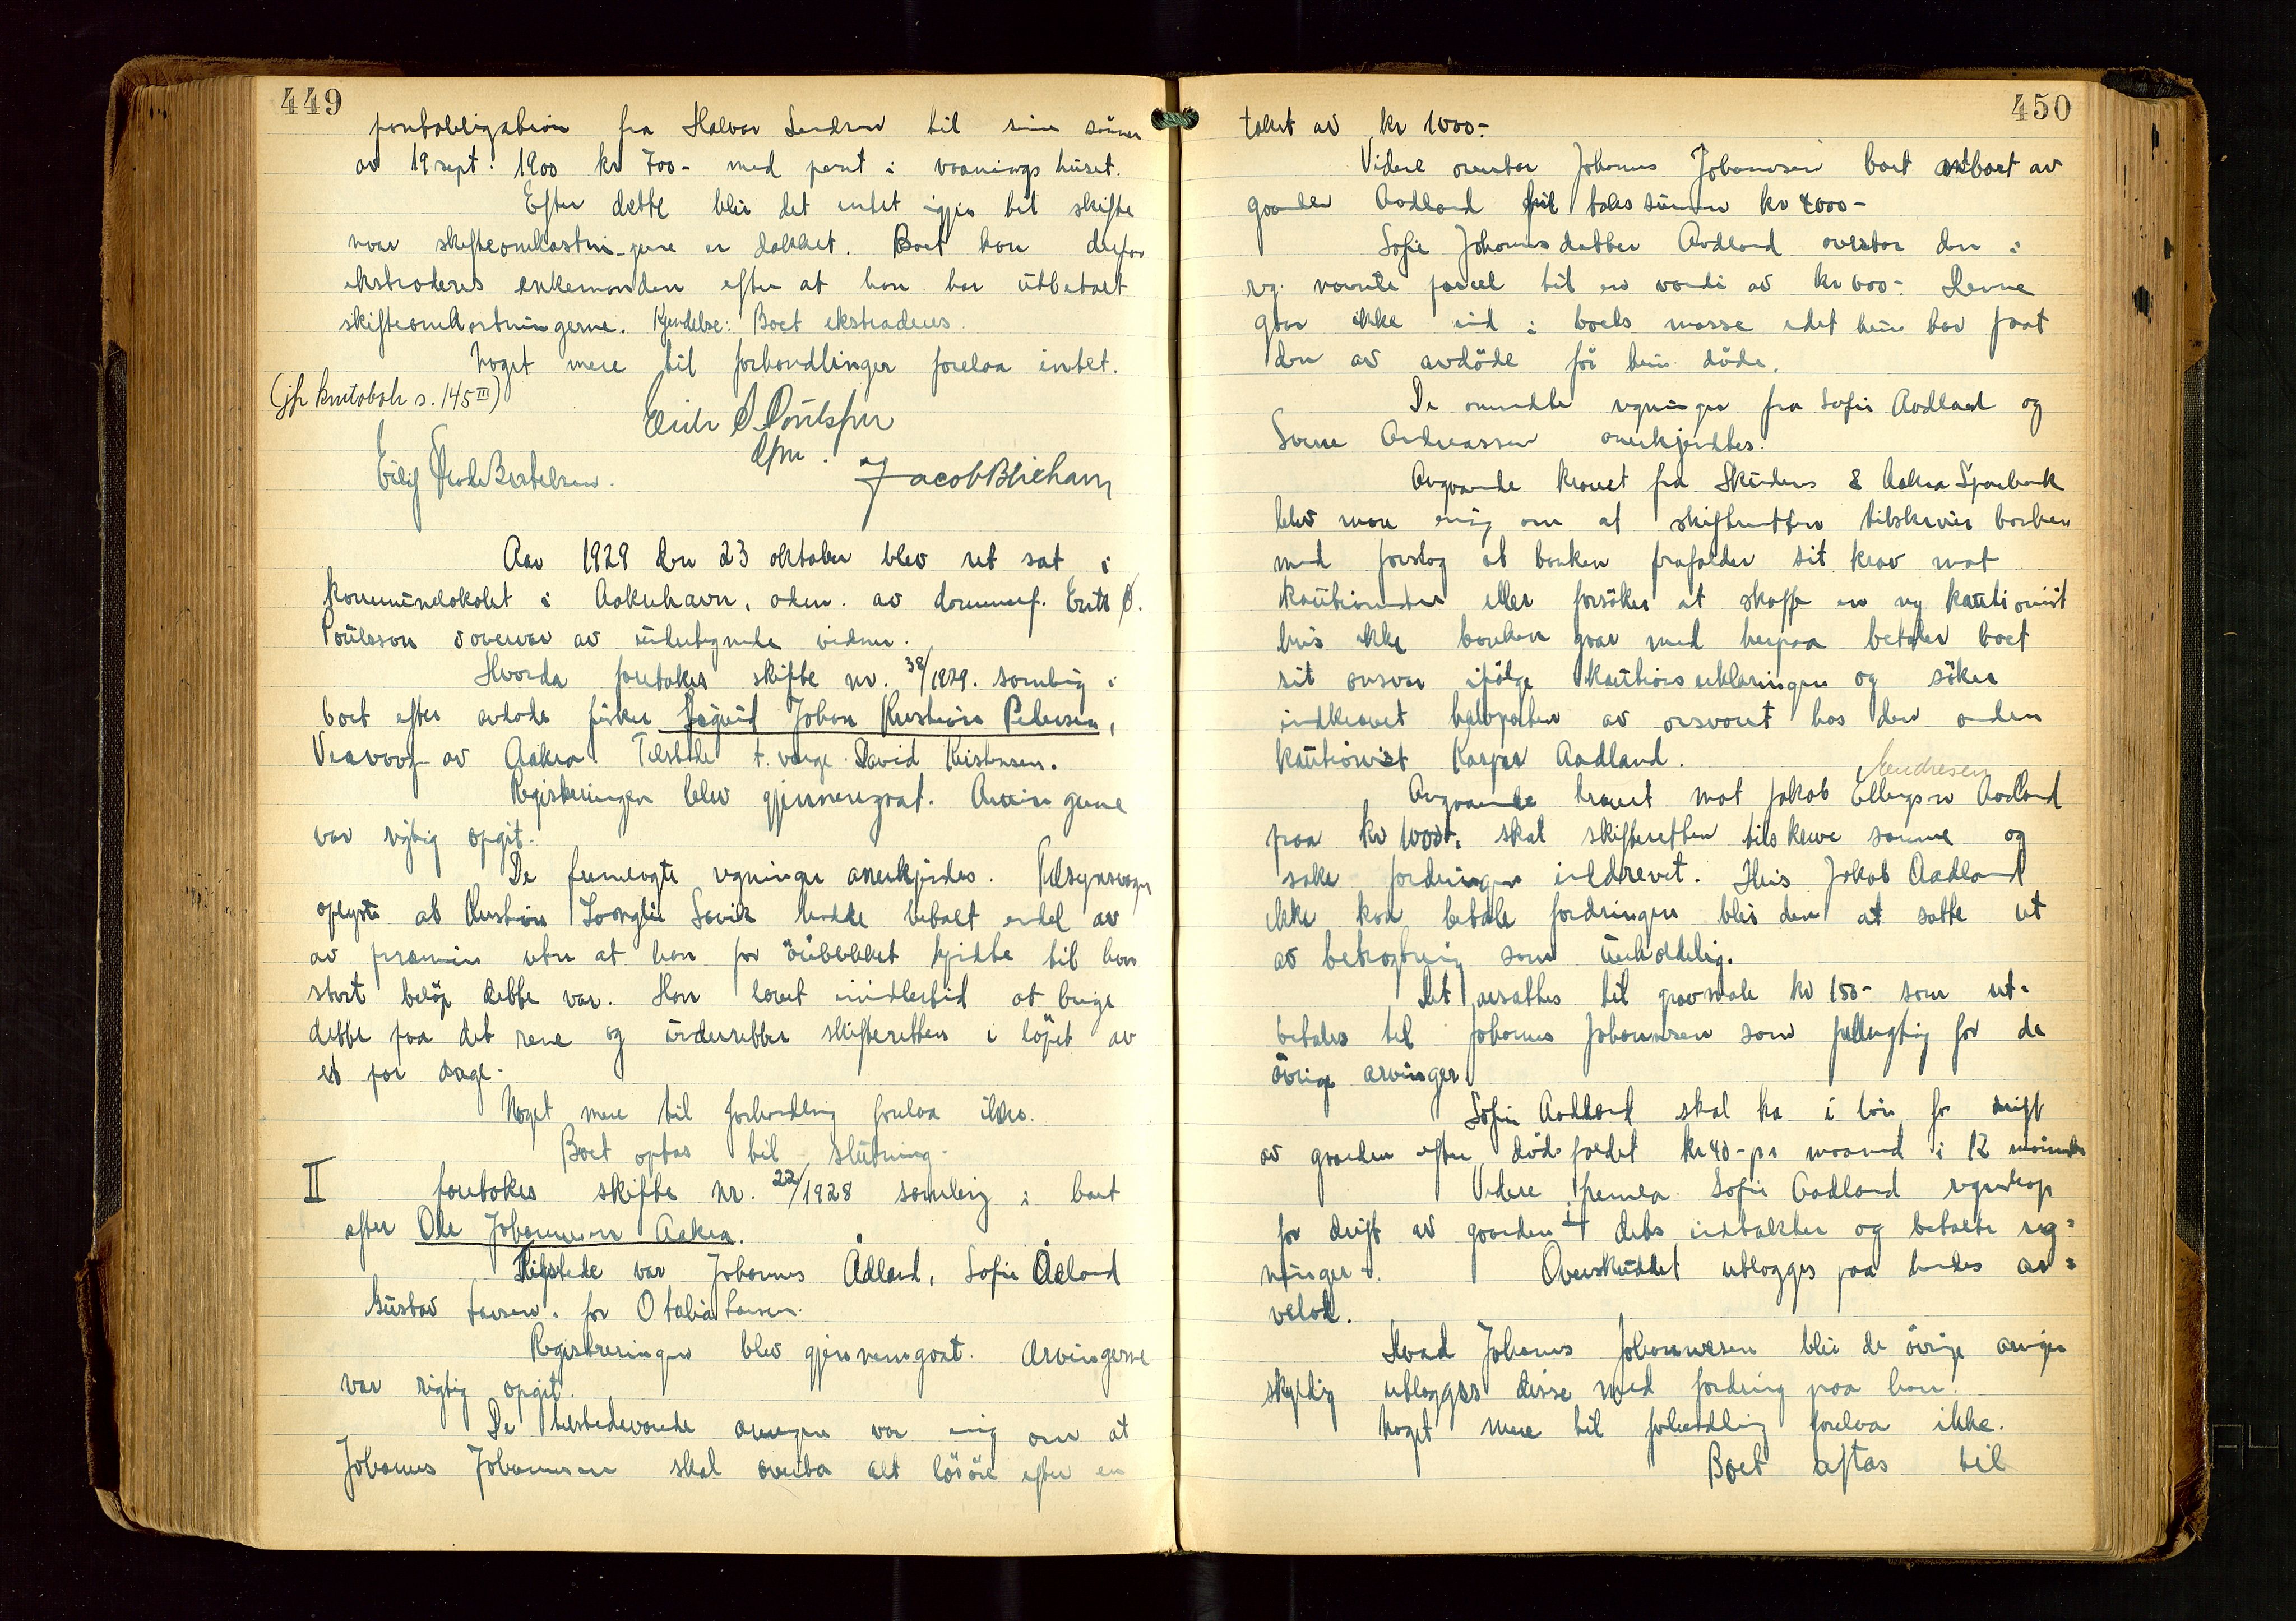 449
pantobligation fra Halvor Sendrer til sine sönner
av 19 sept: 1900 kr 700- med pant i vaaningshuset.
Efter dette blir det intet igjen til skifte
naar skifteomkostningerne er dækket. Boet kan derfor
ekstraderes enkemanden efter at han har utbetalt
skifteomkostningerne. Kjendelse: Boet ekstraderes.
Noget mere til forhandlinger forelaa intet.
(jfr kontobok s. 145 III)
Erik S. Poulsson
Jacob Blieham
Aar 1929 den 23 oktober blev ret sat i
kommunelokalet i Aakrehavn, adm. av dommerf. Erik S.
Poulsson i overvær av undertegnede vidner.
Hvorda foretokes skifte nr. 38/1929. samling i
boet efter avdöde fisker Sigurd Johan Kristian Pedersen,
av Aakra Tilstede t. verge David Kristensen.
Registreringen blev gjennemgaat. Arvingerne
var rigtig opgit.
De fremlagte regninger anerkjendes. Tilsynsverge
oplyste at Kristian Sævik hadde betalt endel av
av præmien uten at han for öieblikket kjendte til hvor
stort belöp dette var. Han lovet imidlertid at bringe
dette paa det rene og underrette skifteretten i löpet av
et par dage.
Noget mere til forhandling forelaa ikke.
Boet optas til slutning.
II foretokes skifte nr. 22/1928 samling i boet
efter Ole Johannesen Aakra.
Tilstede var Johannes Ådland, Sofie Ådland
Gustav Larsen. for Otalia Larsen.
Registreringen blev gjennemgaat. Arvingerne
var rigtig opgit.
De tilstedeværende arvinger var enig om at
Johannes Johannesen skal overta alt lösöre efter en
450
takst av kr 1000.-
Videre overtar Johannes Johannesen boet av
gaarden Aadland til takssummen kr 4000-
Sofie Johannesdatter Aadland overtar den i
reg. nævnte parcel til en værdi av kr 600-. Denne
gaar ikke ind i boets masse idet hun har faat
den av avdöde för hun döde.
De omredte regninger fra Sofie Aadland og
Sverre Andreassen anerkjendtes.
Angaaende kravet fra Skudenes & Aakra Sparebank
blev man enig om at skifteretten tilskriver banken
med forslag at banken frafalder sit krav mot
kautionisten eller forsöker at skaffe en ny kautionist
hvis ikke banken gaar med herpaa betaler boet
sit ansvar ifölge kautionserklæringen og söker
indkrævet halvparten av ansvaret hos den anden
kautionist Kasper Aadland.
Andresen
Angaaende kravet mot Jakob Ellingsen Aadland
paa kr 1000-. skal skifteretten tilskrive samme og
søke fordringen inddrevet. Hvis Jakob Aadland
ikke kan betale fordringen blir den at sætte ut
av betragtning som uerholdelig.
Det avsættes til gravmæle kr 150- som ut-
betales til Johannes Johannesen som fuldmægtig for de
övrige arvinger.
Sofie Aadland skal ha i lön for drift
av gaarden efter dödsfaldet kr 40- pr maaned i 12 maaneder
Videre fremla Sofie Aadland regnskap
for drift av gaarden + dets indtækter og betalte reg-
ninger -. Overskuddet utlægges paa hendes ar-
velod.
Hvad Johannes Johannesen blir de övrige arvinger
skyldig utlægges disse med fordring paa ham.
Noget mere til forhandling forelaa ikke.
Boet optas til